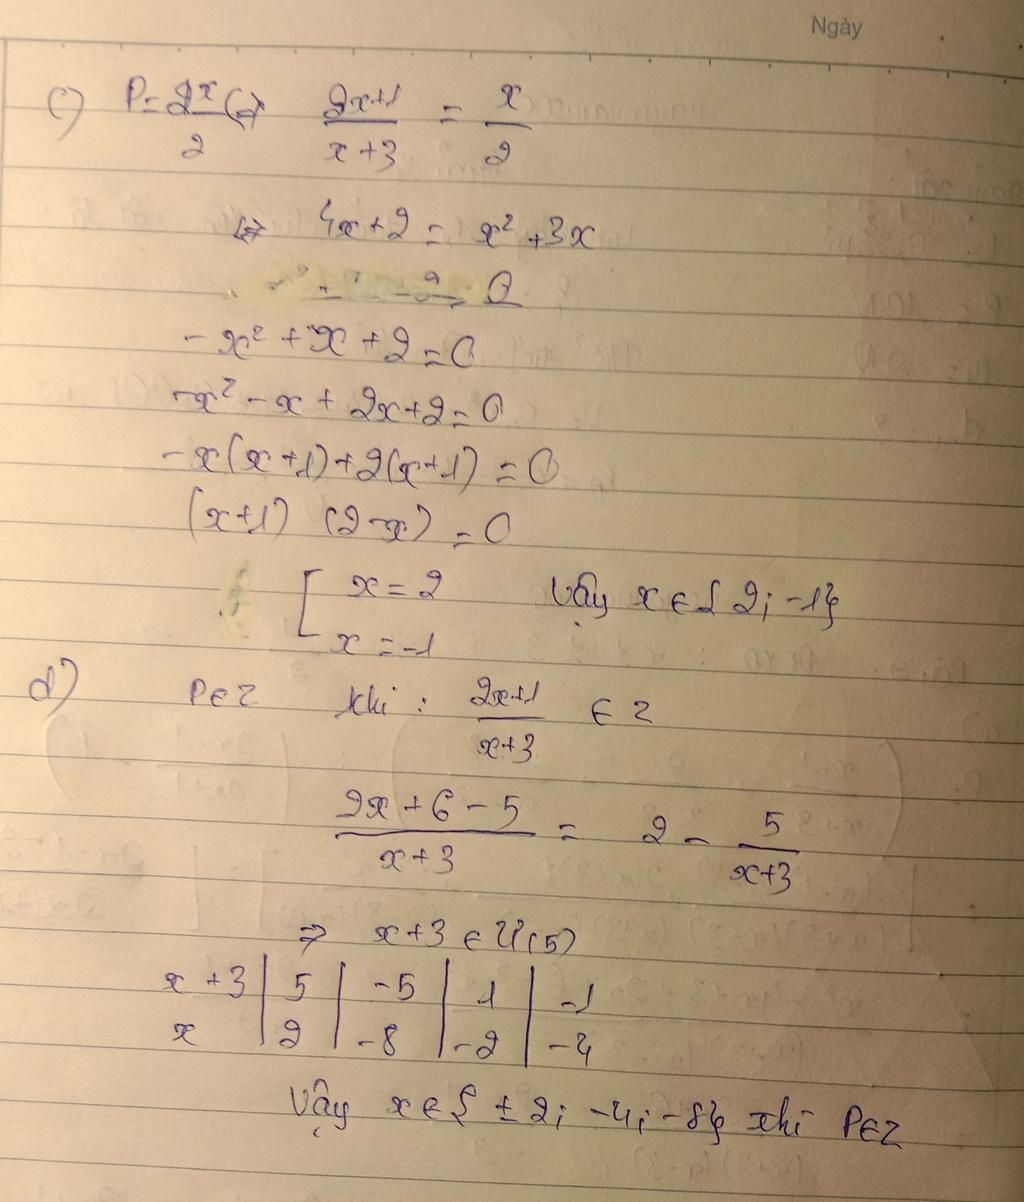 Ngày
c) P = x/2 <=> (2x+1)/(x+3) = x/2
<=> 4x+2 = x² + 3x
- x² + x + 2 = 0
-x² - x + 2x + 2 = 0
-x(x+1) + 2(x+1) = 0
(x+1) (2-x) = 0
[ x = 2 Vậy x ∈ { 2; -1}
x = -1
d) P ∈ Z khi : (2x+1)/(x+3) ∈ Z
(2x + 6 - 5)/(x+3) = 2 - 5/(x+3)
=> x+3 ∈ Ư(5)
x +3 | 5 | -5 | 1 | -1
x | 2 | -8 | -2 | -4
Vậy x ∈ { ± 2; -4; -8} khi P ∈ Z